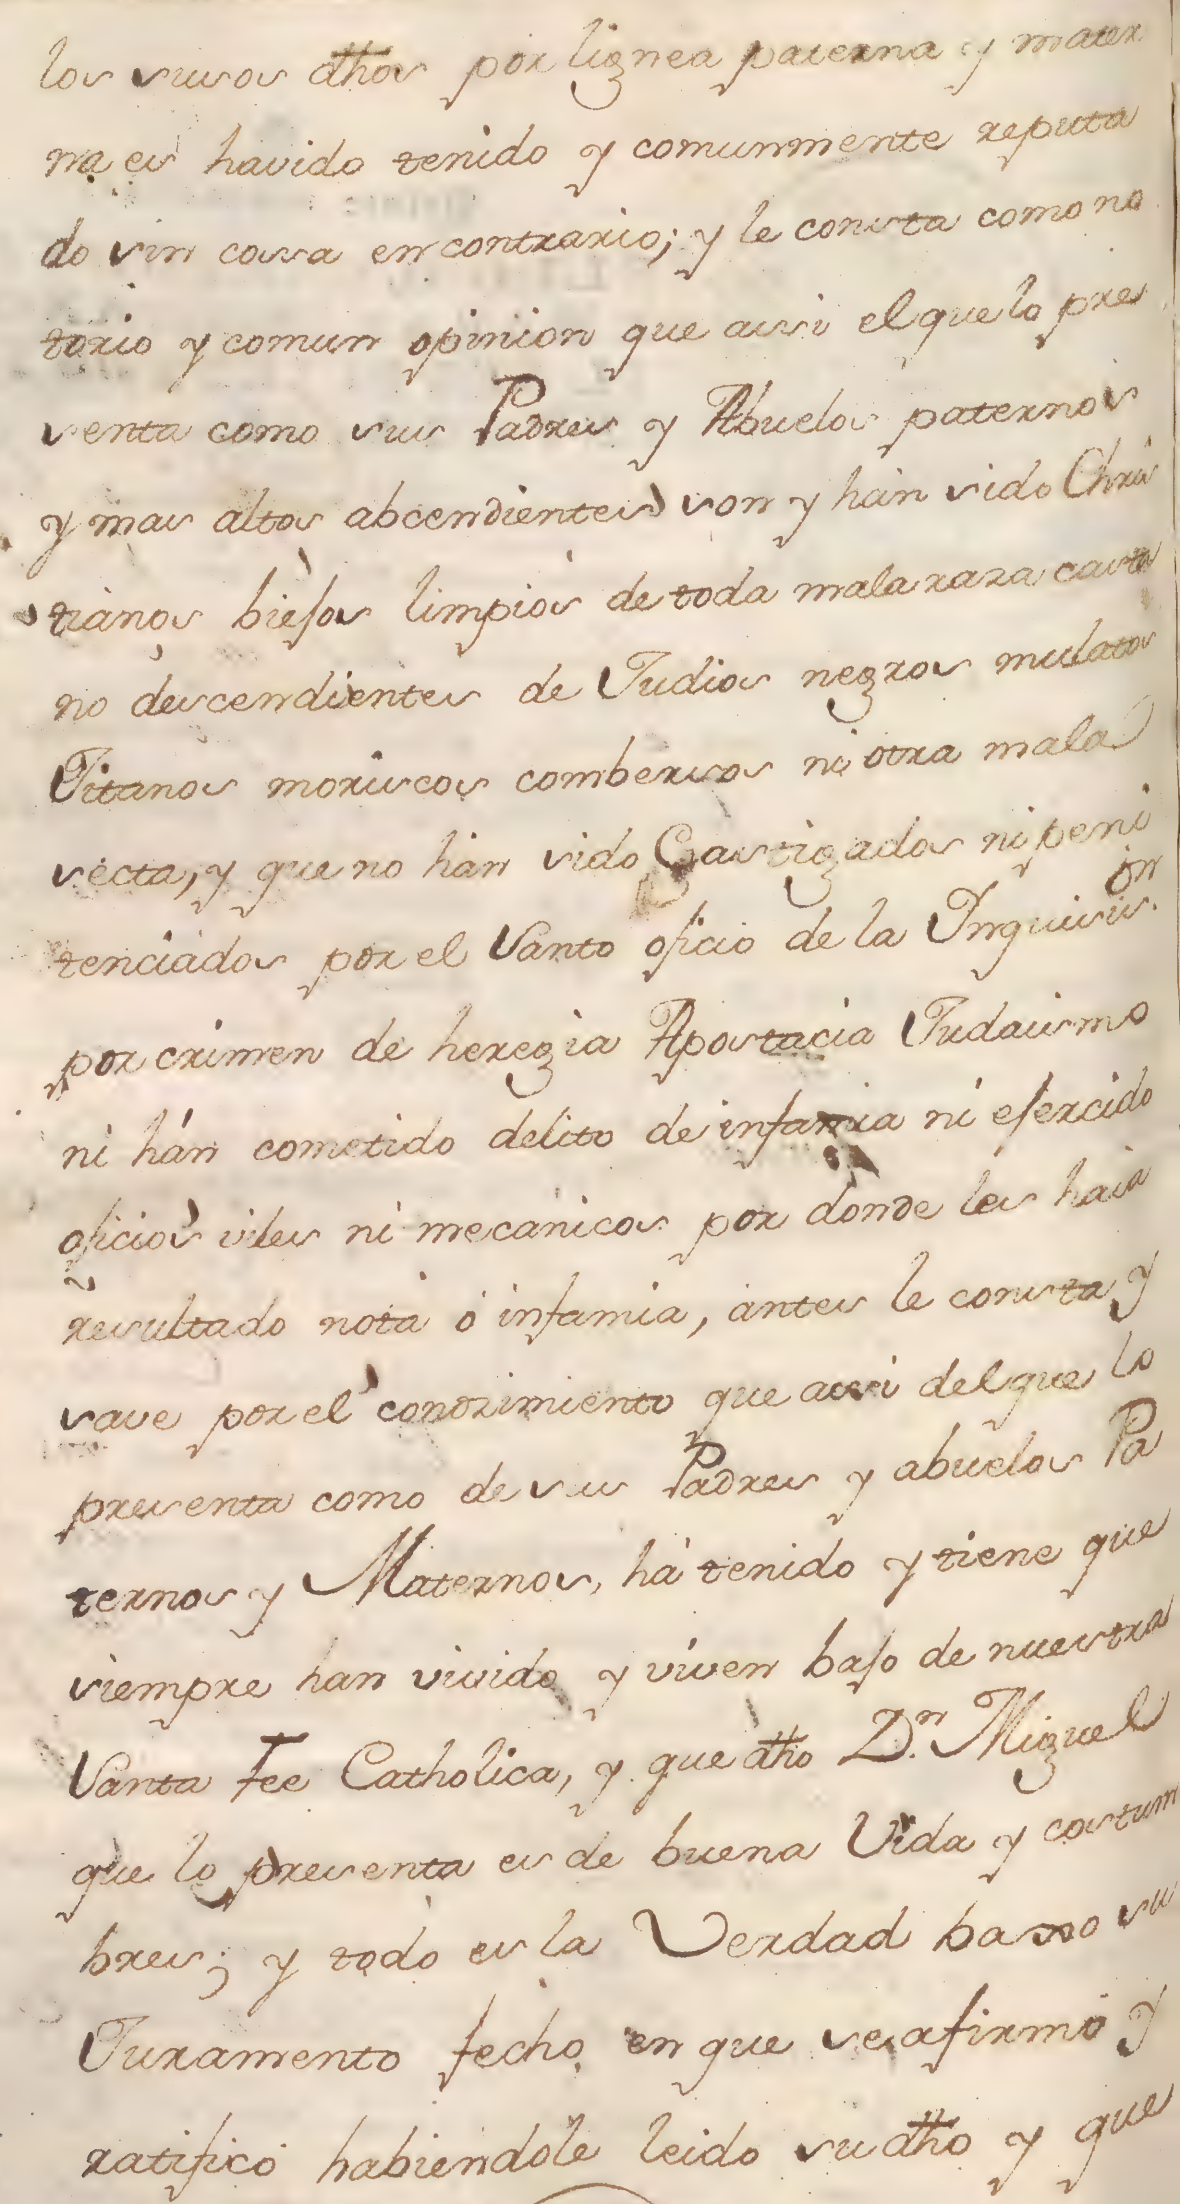 los susos dhos por lignea paterna y mater
na es havido tenido y comunmente reputa
do sin cossa en contrario; y le consta como no
torio y comun opinion que assi el que lo pre
senta como sus Padres y Abuelos paternos
y mas altos abcendientes son y hán sido Chris
tianos biejos limpios de toda mala raza casta
no descendientes de Judios negros mulatos
Jitanos moriscos combersos ni otra mala
secta, y que no hán sido Castigados ni peni
tenciados por el Santo oficio de la Inquisis.on
por crimen de heregia Apostacia Judaismo
ni hán cometido delito de infamia ni ejercido
oficios viles ni mecanicos por donde les haia
resultado nota ó infamia, antes le consta y
save por el conozimiento que assi del que lo
presenta como de sus Padres y abuelos Pa
ternos y Maternos, há tenido y tiene que
siempre han vivido y viven bajo de nuestra
Santa Fee Catholica, y que dho D.n Miguel
que lo presenta es de buena Vida y costum
bres; y todo es la Verdad baxo su
Juramento fecho en que se afirmó y
ratificó habiendole leido su dho y que